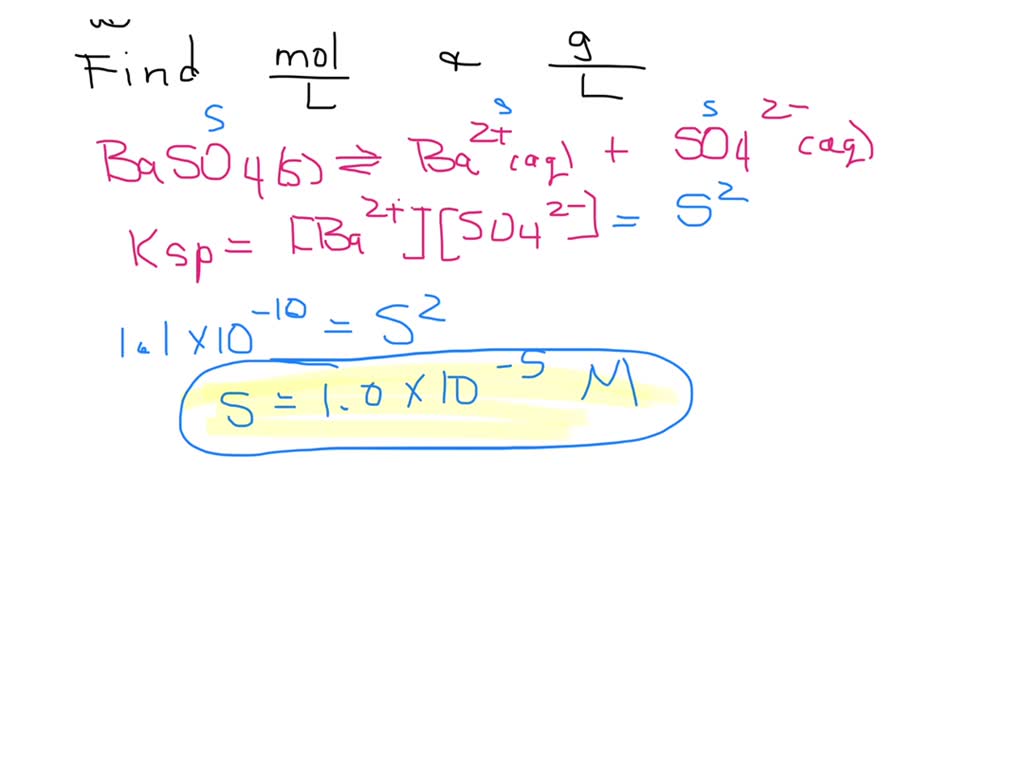 Find mol/L & g/L
S s s
BaSO4(s) ⇌ Ba2+(aq) + SO4 2-(aq)
Ksp = [Ba2+][SO4 2-] = S2
1.1 × 10-10 = S2
S = 1.0 × 10-5 M